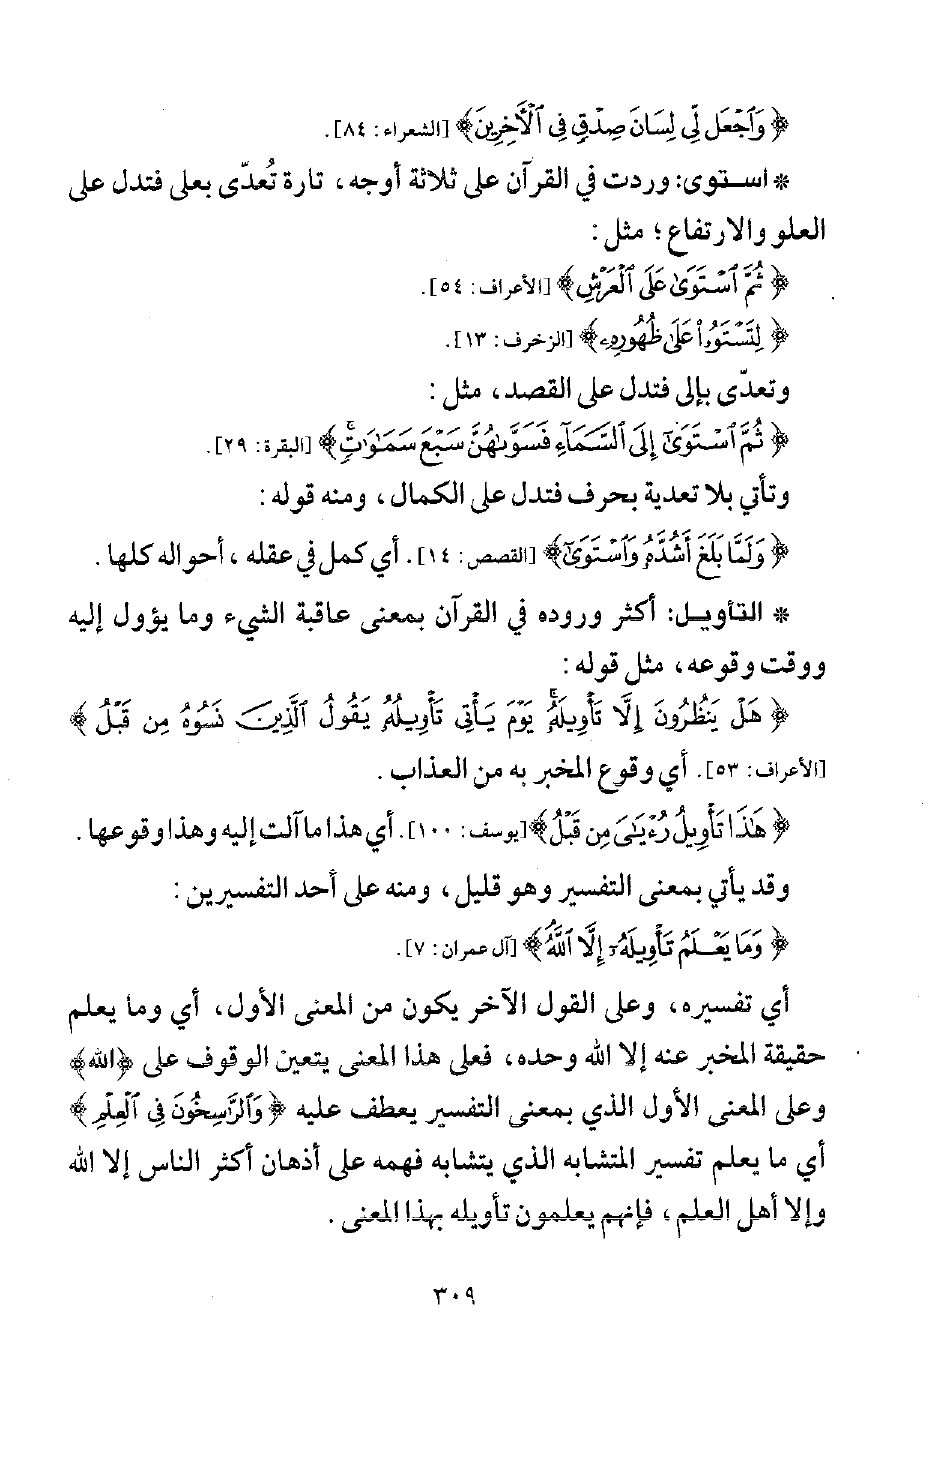 ﴿ وَٱجۡعَل لِّي لِسَانَ صِدۡقٖ فِي ٱلۡأٓخِرِينَ ﴾ [الشعراء: ٨٤].
* استوى: وردت في القرآن على ثلاثة أوجه، تارة تُعدّى بعلى فتدل على
العلو والارتفاع؛ مثل:
﴿ ثُمَّ ٱسۡتَوَىٰ عَلَى ٱلۡعَرۡشِ ﴾ [الأعراف: ٥٤].
﴿ لِتَسۡتَوُۥاْ عَلَىٰ ظُهُورِهِۦ ﴾ [الزخرف: ١٣].
وتعدّى بإلى فتدل على القصد، مثل:
﴿ ثُمَّ ٱسۡتَوَىٰٓ إِلَى ٱلسَّمَآءِ فَسَوَّىٰهُنَّ سَبۡعَ سَمَٰوَٰتٖۚ ﴾ [البقرة: ٢٩].
وتأتي بلا تعدية بحرف فتدل على الكمال، ومنه قوله:
﴿ وَلَمَّا بَلَغَ أَشُدَّهُۥ وَٱسۡتَوَىٰٓ ﴾ [القصص: ١٤]. أي كمل في عقله، أحواله كلها.
* التأويل: أكثر وروده في القرآن بمعنى عاقبة الشيء وما يؤول إليه
ووقت وقوعه، مثل قوله:
﴿ هَلۡ يَنظُرُونَ إِلَّا تَأۡوِيلَهُۥۚ يَوۡمَ يَأۡتِي تَأۡوِيلُهُۥ يَقُولُ ٱلَّذِينَ نَسُوهُ مِن قَبۡلُ ﴾
[الأعراف: ٥٣]. أي وقوع المخبر به من العذاب.
﴿ هَٰذَا تَأۡوِيلُ رُءۡيَٰيَ مِن قَبۡلُ ﴾ [يوسف: ١٠٠]. أي هذا ما آلت إليه وهذا وقوعها.
وقد يأتي بمعنى التفسير وهو قليل، ومنه على أحد التفسيرين:
﴿ وَمَا يَعۡلَمُ تَأۡوِيلَهُۥٓ إِلَّا ٱللَّهُۗ ﴾ [آل عمران: ٧].
أي تفسيره، وعلى القول الآخر يكون من المعنى الأول، أي وما يعلم
حقيقة المخبر عنه إلا الله وحده، فعلى هذا المعنى يتعين الوقوف على ﴿الله﴾
وعلى المعنى الأول الذي بمعنى التفسير يعطف عليه ﴿ وَٱلرَّٰسِخُونَ فِي ٱلۡعِلۡمِ ﴾
أي ما يعلم تفسير المتشابه الذي يتشابه فهمه على أذهان أكثر الناس إلا الله
وإلا أهل العلم، فإنهم يعلمون تأويله بهذا المعنى.
٣٠٩